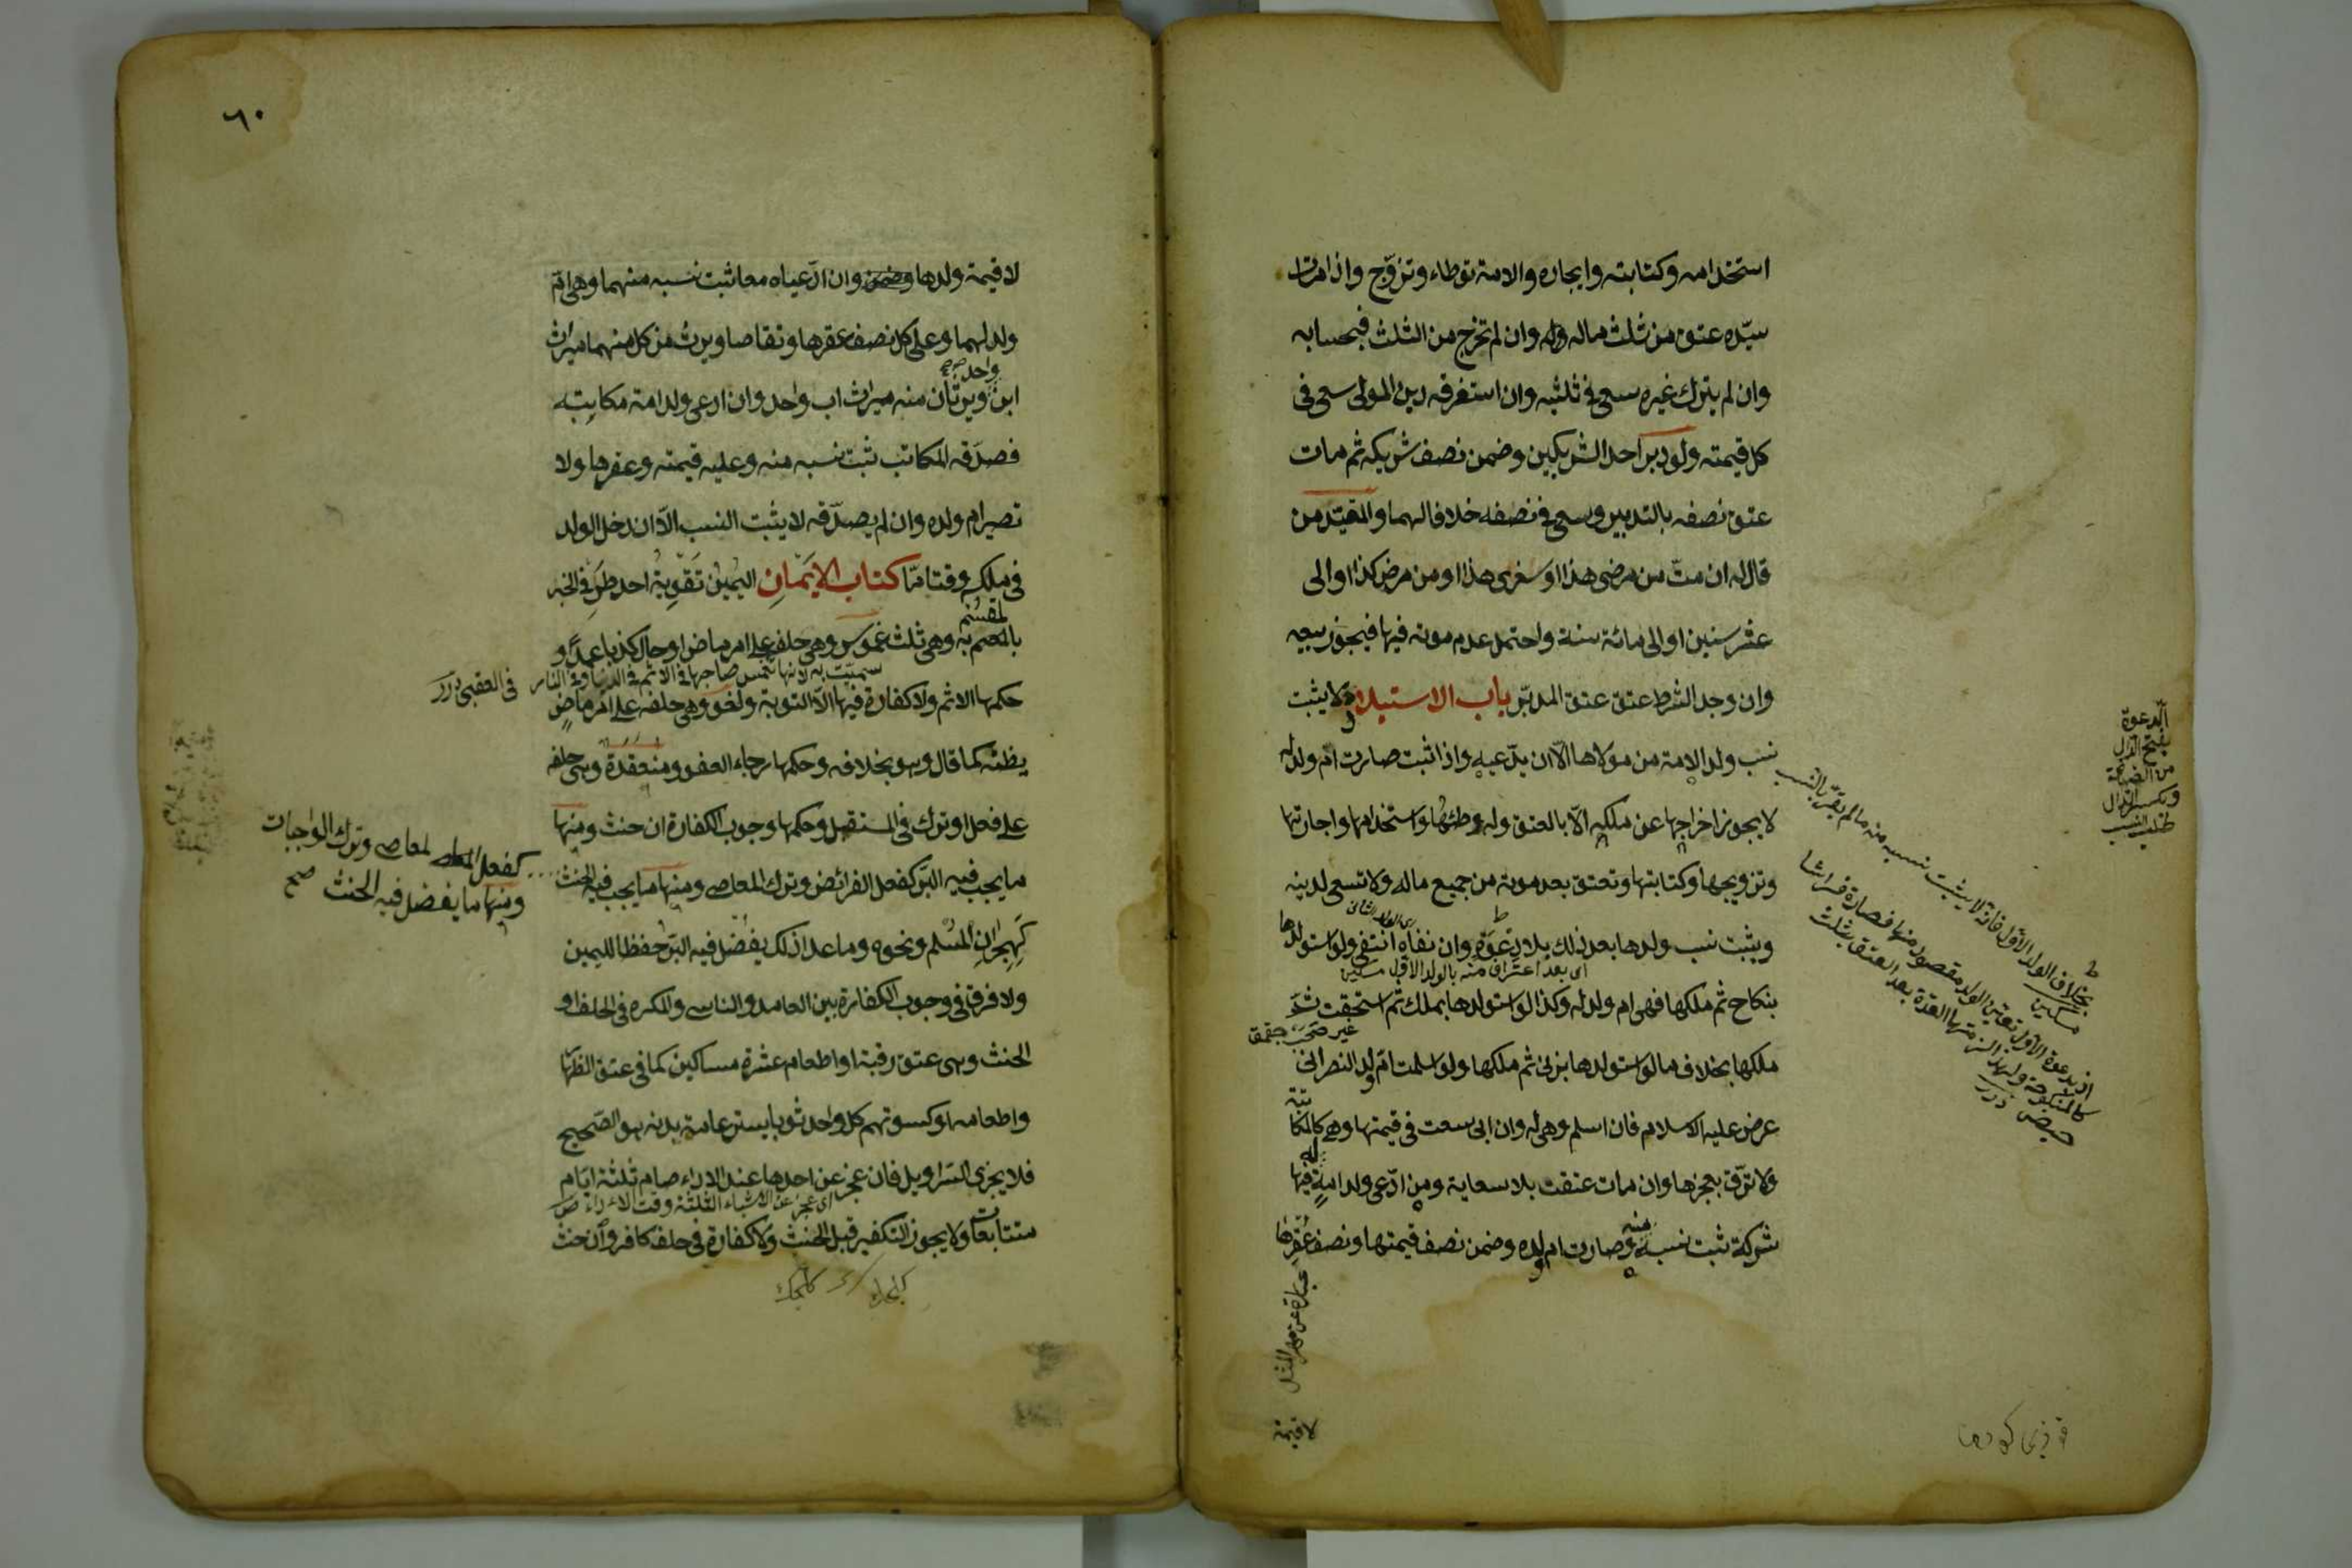 استخدامه وكتابته وايجاره والامة توطاء وتزوّج واذا مات
سيّده عتق من ثلث ماله وان لم تخرج من الثلث فبحسابه
وان لم يترك غيره سعى فى ثلثيه وان استغرقه دين المولى سعى فى
كل قيمته ولو دبر احد الشريكين وضمن نصف شريكه ثم مات
عتق نصفه بالتدبير وسعى فى نصفه خلافا لهما والمقيّد من
قال له ان متّ من مرضى هذا او سفرى هذا او من مرض كذا او الى
عشر سنين او الى مائة سنة واحتمل عدم موته فيها فيجوز بيعه
وان وجد الشرط عتق عتق المدبّر باب الاستيلاد لا يثبت
نسب ولد الامة من مولاها الّا ان يدّعيه واذا ثبت صارت ام ولد له
لا يجوز اخراجها عن ملكه الّا بالعتق وله وطئها واستخدامها واجارتها
وتزويجها وكتابتها وتعتق بعد موته من جميع ماله ولا تسعى لدينه
اى الولد الثانى
ويثبت نسب ولدها بعد ذلك بلا دعوة وان نفاه انتفى ولو استولدها
اى بعد اعتراف منه بالولد الاوّل مسكين
بنكاح ثم ملكها فهى ام ولد له وكذا لو استولدها بملك ثم استحقت ثم
ملكها بخلاف ما لو استولدها بزنى ثم ملكها ولو اسلمت امّ ولد النصرانى
عرض عليه الاسلام فان اسلم وهى له وان ابى سعت فى قيمتها وهى كالمكاتبة
ولا ترّق بعجزها وان مات عتقت بلا سعاية ومن ادّعى ولد امة له فيها
شركة ثبت نسبه منه وصارت ام ولده وضمن نصف قيمتها ونصف عقرها
عبارة عن مهر المثل
لا قيمة
الدعوة
بفتح الدال
وبكسر الدال
طلب النسب
بخلاف الولد الاوّل فانه لا يثبت نسبه منه ما لم يقرّ بالنسب
مسكين
اذ بدعوة الاول تعيّن الولد مقصودا منها فصارت فراشا
كالمنكوحة ولهذا لزمتها العدّة بعد العتق بثلث
حيض درر
٦٠
لا قيمة ولدها وان ادّعياه معا ثبت نسبه منهما وهى امّ
ولد لهما وعلى كل نصف عقرها وتقاصا ويرث من كل منهما ميراث
ابن ويرثان منه ميراث اب واحد وان ادعى ولد امة مكاتبه
فصدّقه المكاتب ثبت نسبه منه وعليه قيمته وعقرها ولا
تصير ام ولده وان لم يصدّقه لا يثبت النسب الّا ان دخل الولد
فى ملكه وقتا مّا كتاب الايمان اليمين تقوية احد طرفى الخبر
بالمقسم به وهى ثلث غموس وهى حلفه على امر ماض او حال كذبا عمدا و
سميّت به لانها تغمس صاحبها فى الاثم فى الدنيا وفى النار فى العقبى درر
حكمها الاثم ولا كفارة فيها الّا التوبة ولغو وهى حلفه على امر ماض
يظنه كما قال وهو بخلافه وحكمها رجاء العفو ومنعقدة وهى حلفه
على فعل او ترك فى المستقبل وحكمها وجوب الكفارة ان حنث ومنها
ما يجب فيه البرّ كفعل الفرائض وترك المعاصى ومنها ما يجب فيه الحنث
كفعل المعاصى وترك الواجبات
ومنها ما يفضل فيه الحنث صح
كهجران المسلم ونحوه وما عدا ذلك يفضل فيه البرّ حفظا لليمين
ولا فرق فى وجوب الكفارة بين العامد والناسى والمكره فى الحلف او
الحنث وهى عتق رقبة او اطعام عشرة مساكين كما فى عتق الظهار
واطعامه او كسوتهم كل واحد ثوبا يستر عامة بدنه هو الصّحيح
فلا يجزى السّراويل فان عجز عن احدها عند الاداء صام ثلثة ايّام
اى عجز عن الاشياء الثلثة وقت الاداء
متتابعات ولا يجوز التكفير قبل الحنث ولا كفارة فى حلف كافر وان حنث